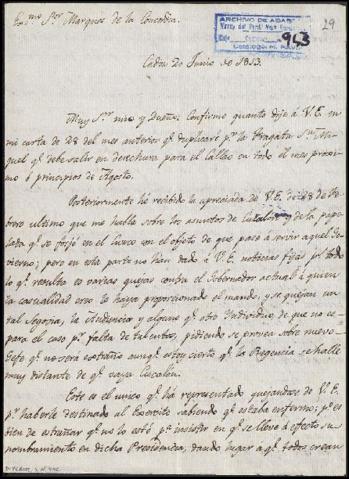 Exmo. Sor. Marques de la Concordia.
ARCHIVO DE ABASCAL
943
29
Cadiz 20 Junio de 1813.
Muy Sor. mio y Dueño: Confirmo quanto dije à V.E. en
mi carta de 28 del mes anterior qe. duplicaré pr. la Fragata Sn. Mi-
guel qe. debe salir en derechura para el Callao en todo el mes proxi-
mo ò principios de Agosto.
Posteriormente hé recibido la apreciada de V.E. de 28 de Fe-
brero ultimo que me halla sobre los asuntos de y de la pape-
leta qe. se forjó en el Cuzco con el objeto de que pase à servir aquel Go-
vierno; pero en esta parte no han dado à V.E. noticias fijas pr. todo
lo qe. resulta es varias quejas contra el Gobernador actual à quien
la casualidad creo le haya proporcionado el mando, y se quejan un
tal Segovia, la Audiencia y alguno qe. otro Individuo de que no es
para el caso pr. falta de talentos, pidiendo se provea sobre nuevo
Gefe qe. no será extraño aunqe. estoy cierto qe. la Regencia se halle
muy distante de qe. vaya
Este es el unico qe. há representado quejandose de V.E.
pr. haberle destinado al Exercito sabiendo qe. estaba enfermo; pr. es
bien de extrañar qe. no lo esté pa. insistir en qe. se lleve à efecto su
nombramiento en dicha Presidencia, dando lugar à qe. todos crean